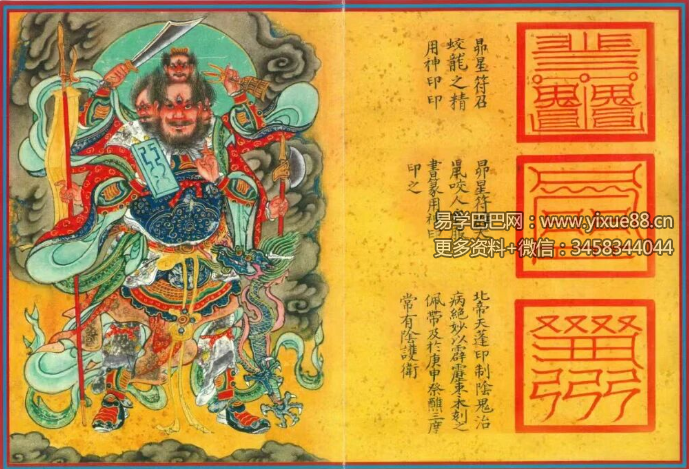 昴星符召
蛟龍之精
用神印印
昴星符
鼠咬人
書篆用神印
印之
北帝天蓬印制陰鬼治
病絕妙以霹靂棗木刻之
佩帶及於庚申祭醮三度
常有陰護衛
易学巴巴网：www.yixue88.cn
更多资料+微信：3458344044